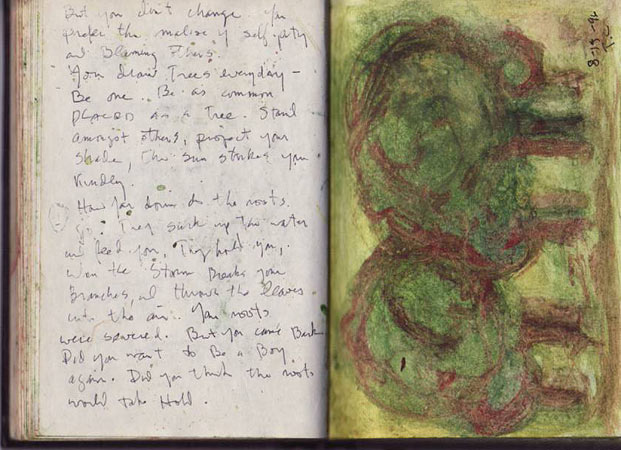 But you don't change. You
prefer the malise of self-pity
and Blaming Others.
You draw Trees everyday -
Be one.. Be as common
PLACED AS A Tree. Stand
amongst others, project your
Shade, The sun strikes you
Kindly.
How far down do the roots
go. They suck up the water
and feed you, They hold you,
When the Storm Breaks your
Branches, and throws the leaves
into the air. Your roots
were severed. But you came Back
Did you want to Be a Boy
again. Did you think the roots
would take Hold.
8-19-96